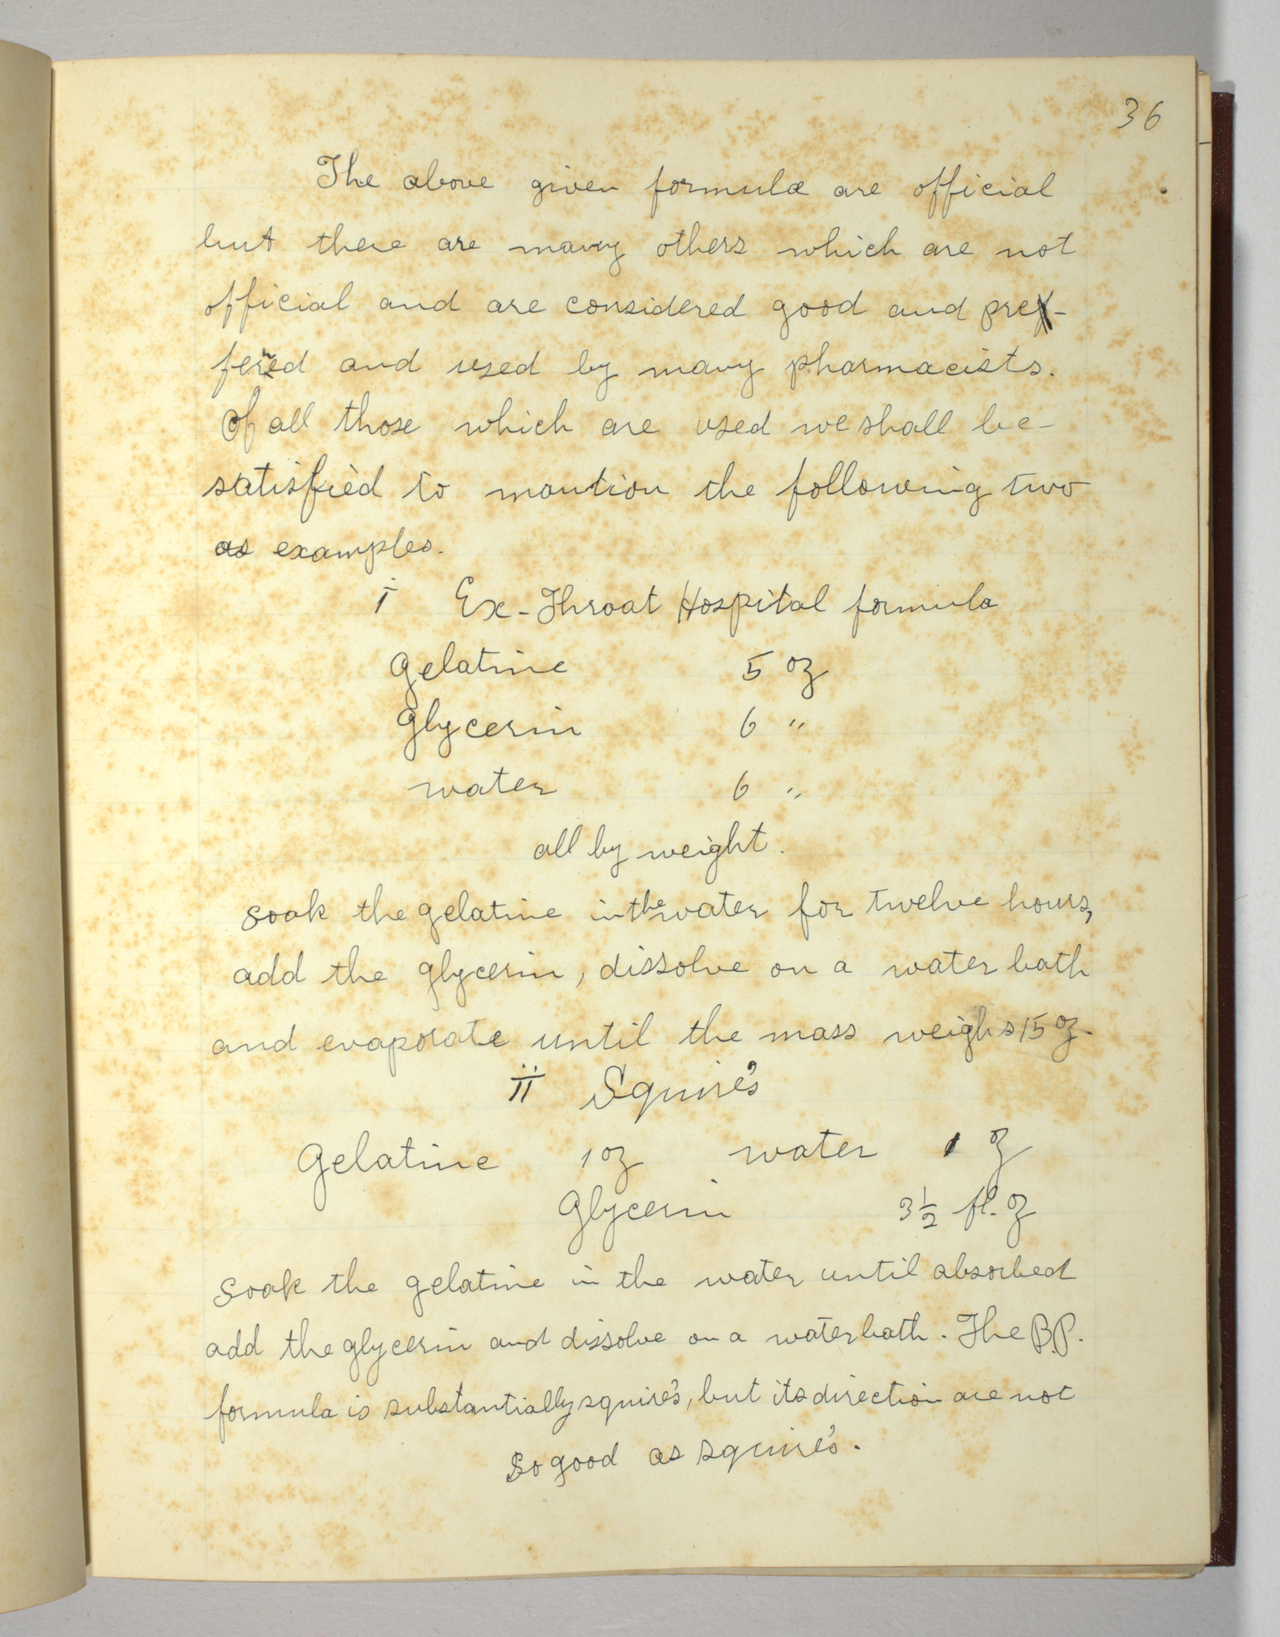 36
The above given formulæ are official
but there are many others which are not
official and are considered good and pre-
ferred and used by many pharmacists.
Of all those which are used we shall be-
satisfied to mantion the following two
as examples.
i Ex-Throat Hospital formula
Gelatine 5 oz
Glycerin 6 "
water 6 "
all by weight.
Soak the gelatine in the water for twelve hours,
add the glycerin, dissolve on a water bath
and evaporate until the mass weighs 15 oz.
ii Squire's
Gelatine 1 oz water 1 oz
Glycerin 3½ fl. oz
Soak the gelatine in the water until absorbed
add the glycerin and dissolve on a waterbath. The B.P.
formula is substantially squire's, but its direction are not
So good as squire's.